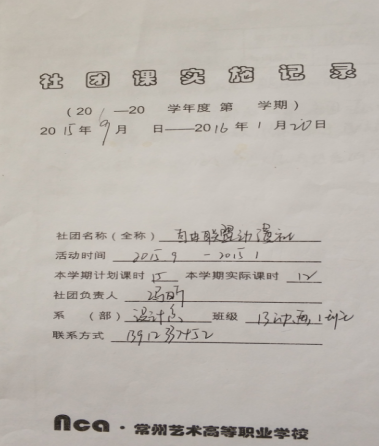 社团课实施记录
(20 —20 学年度 第 学期)
2015年9月 日——2016年1月20日
社团名称(全称) 自由联盟动漫社
活动时间 2015 9 - 2015 1
本学期计划课时 15 本学期实际课时 12
社团负责人 冯
系 (部) 设计系 班级 13
联系方式
nca · 常州艺术高等职业学校